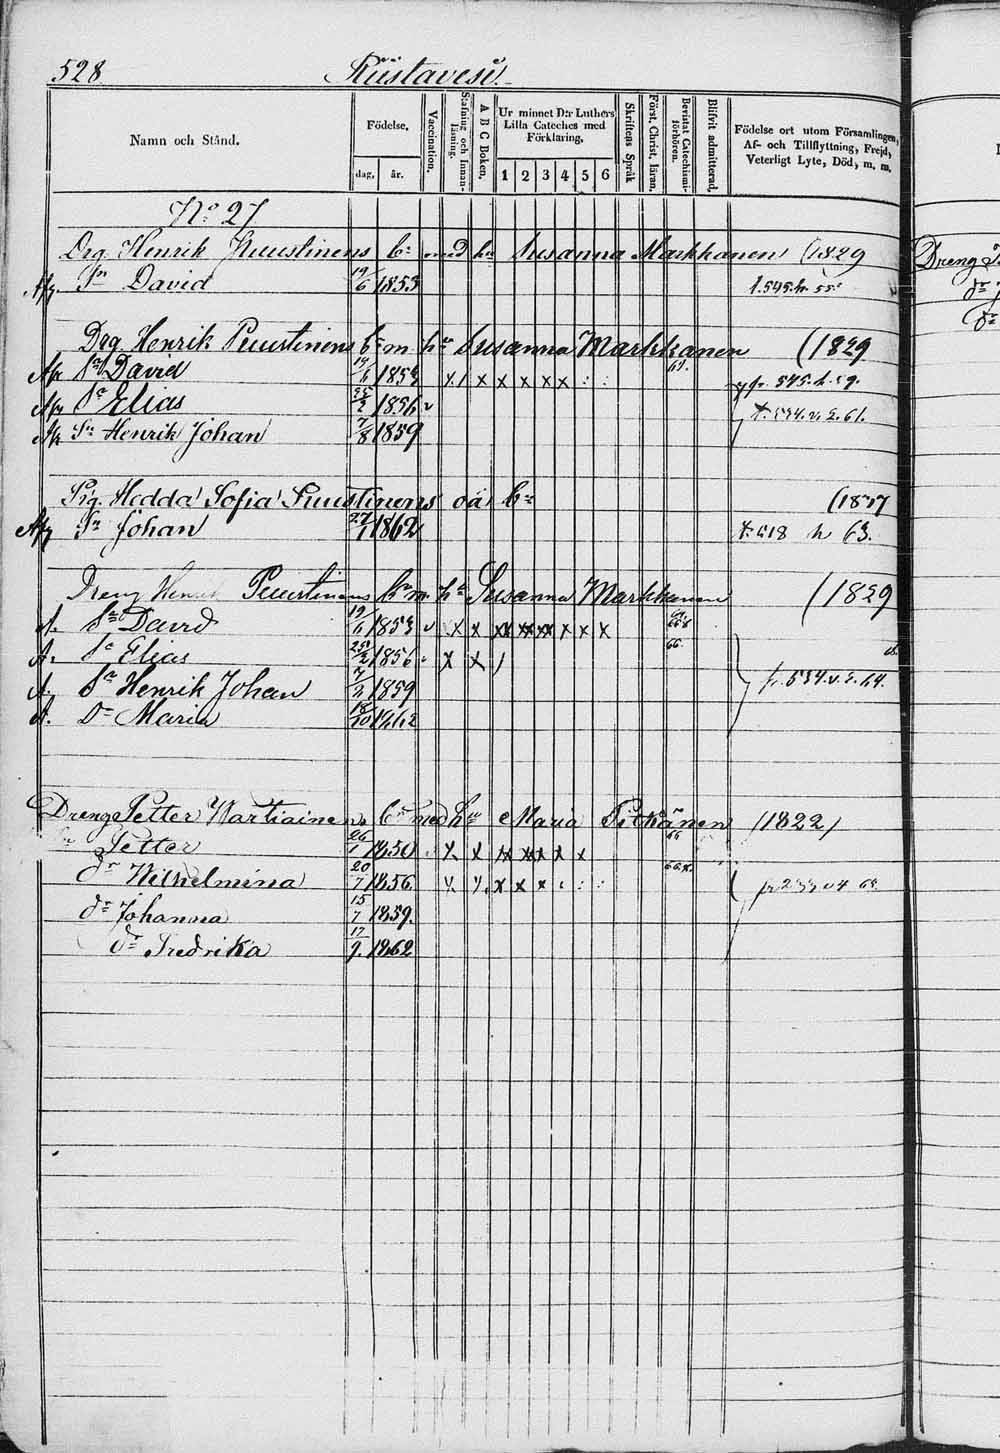 528. Riistavesi.
Namn och Stånd.
Födelse,
dag, år.
Vaccination.
Stafning och Innanläsning.
A B C Boken.
Ur minnet D:r Luthers Lilla Cateches med Förklaring,
1 2 3 4 5 6
Skriftens Språk
Först, Christ, läran,
Bevistat Catechismiförhören.
Blifvit admitterad,
Födelse ort utom Församlingen,
Af- och Tillflyttning, Frejd,
Veterligt Lyte, Död, m. m.
No 27
Drg. Henrik Puustinens bn med hu Susanna Markkanen (1829
Afg. Sn David 19/6 1853 t. 545. h 55.
Drg Henrik Puustinens bn m hu Susanna Markkanen (1829
Afg Sn David 19/6 1853 x / x x x x x : : 61. fr. 545. h. 59.
Afg Sn Elias 25/2 1856 v t. 534. v. 2. 61.
Afg Sn Henrik Johan 7/8 1859
Pig. Hedda Sofia Puustinens oä bn (1837
Afg Sn Johan 27/1 1862 t. 618 h 63.
Dreng Henrik Puustinens bn m hu Susanna Markkanen (1829
A. Sn David 19/6 1853 v x x xx xx xx x x x
A. Sn Elias 25/2 1856 x x / 66.
A. Sn Henrik Johan 7/8 1859 fr. 534. v. 2. 64.
A. Dr Maria 18/10 1862
Dreng Petter Wartiainens bn med hu Maria Pitkänen (1822)
Sn Petter 26/1 1850 x x xx xx x x x 66
dr Wilhelmina 20/7 1856. x x x x x : : :
dr Johanna 15/7 1859.
dr Fredrika 17/9. 1862
Dreng
dr
dr